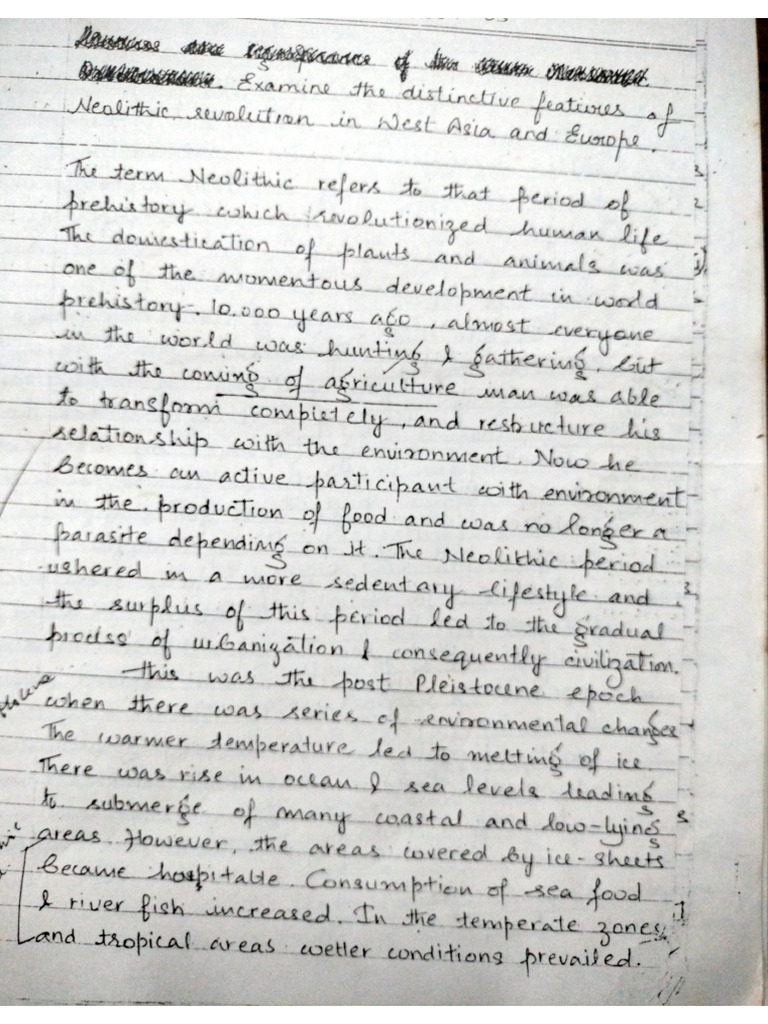 Examine the distinctive features of
Neolithic revolution in West Asia and Europe.
The term Neolithic refers to that period of
prehistory which revolutionized human life
The domestication of plants and animals was
one of the momentous development in world
prehistory. 10.000 years ago, almost everyone
in the world was hunting & gathering, but
with the coming of agriculture man was able
to transform completely, and restructure his
relationship with the environment. Now he
becomes an active participant with environment
in the production of food and was no longer a
parasite depending on it. The Neolithic period
ushered in a more sedentary lifestyle and
the surplus of this period led to the gradual
process of urbanization & consequently civilization.
This was the post Pleistocene epoch
when there was series of environmental changes
The warmer temperature led to melting of ice.
There was rise in ocean & sea levels leading
to submerge of many coastal and low-lying
areas. However, the areas covered by ice-sheets
became hospitable. Consumption of sea food
& river fish increased. In the temperate zones
and tropical areas wetter conditions prevailed.